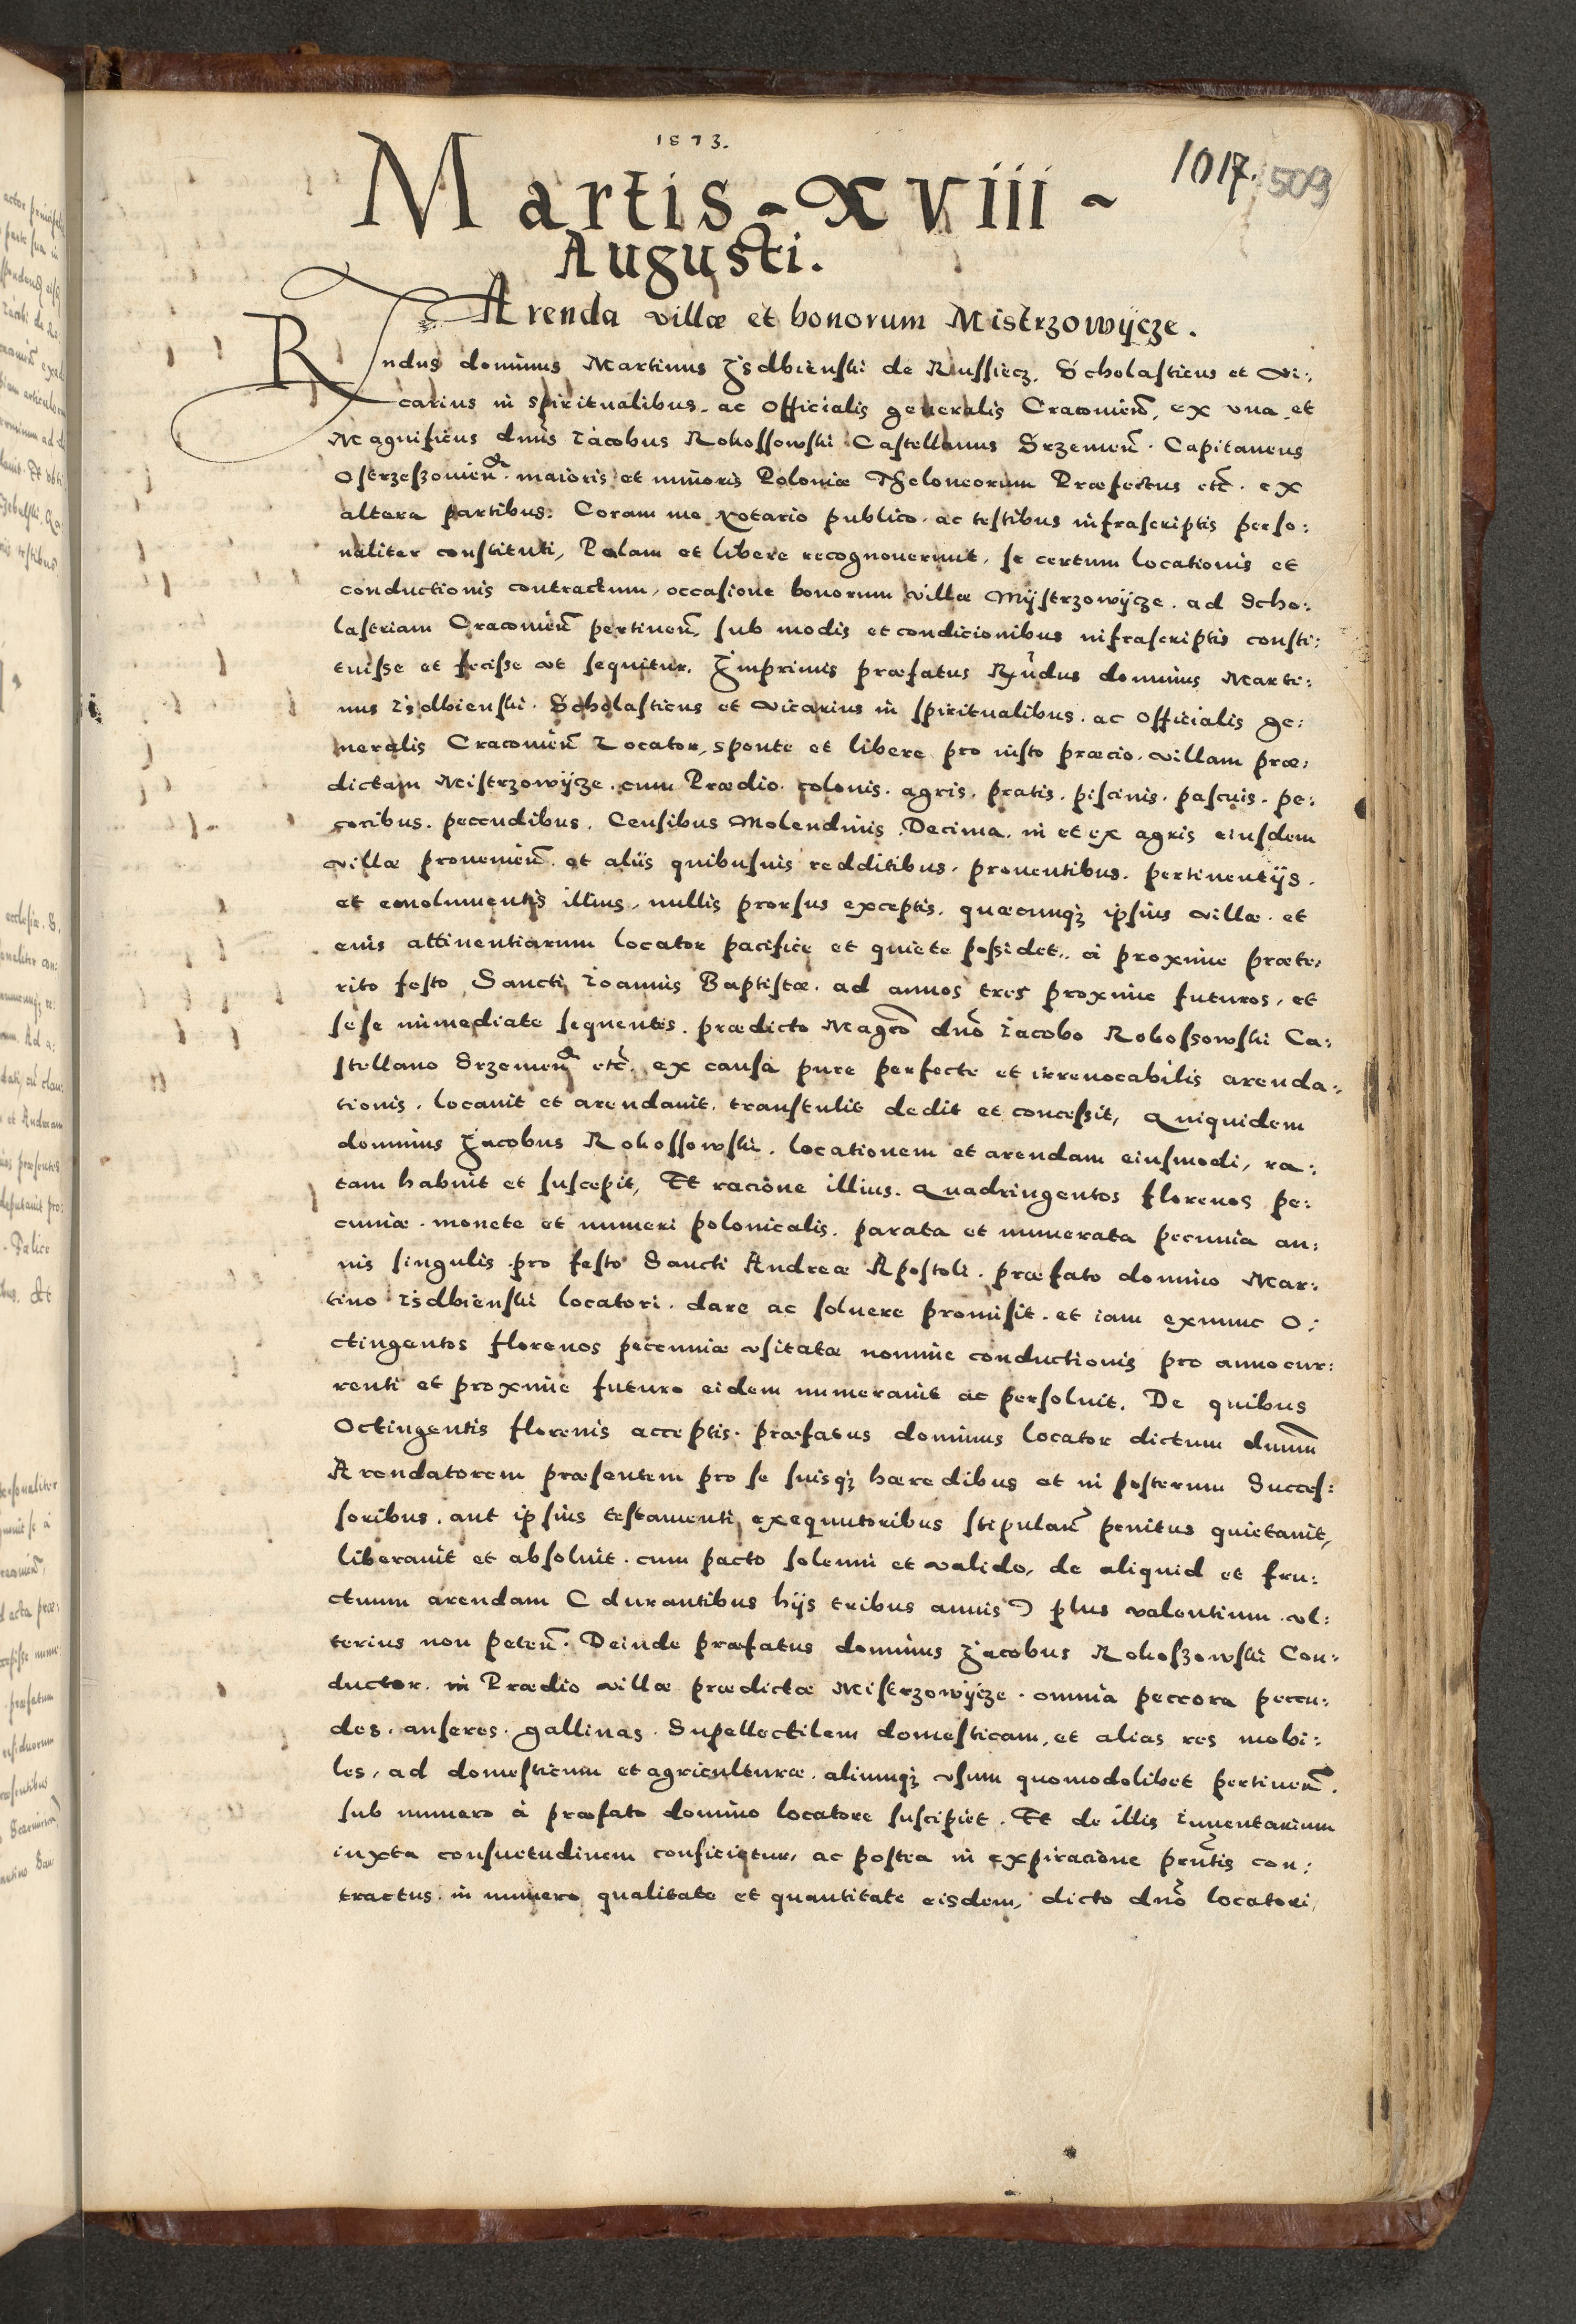 1573.
1017. 509
Martis - XVIII -
Augusti.
Arenda villæ et bonorum Mistrzowÿcze.
Rndus dominus Martinus Izdbienski de Russiecz. Scholasticus et Vi:
carius in spiritualibus. ac Officialis generalis Cracovien̄, ex vna et
Magnificus dn̄s Iacobus Rokossowski Castellanus Srzemen̄. Capitaneus
Ostrzeszovien̄. maioris et minoris Poloniæ Theloneorum Præfectus etc̄. ex
altera partibus: Coram me Notario publico. ac testibus infrascriptis perso:
naliter constituti, Palam et libere recognouerunt, se certum locationis et
conductionis contractum, occasione bonorum villæ Mÿstrzowÿcze. ad Scho:
lastriam Cracovien̄ pertinen̄, sub modis et condicionibus infrascriptis consti:
tuisse et fecisse vt sequitur. Imprimis præfatus Rn̄dus dominus Marti:
nus Isdbienski. Scholasticus et Vicarius in spiritualibus. ac Officialis ge:
neralis Cracovien̄ Locator, sponte et libere pro iusto præcio. villam præ:
dictam Mistrzowÿcze. cum Prædio. colonis. agris. pratis. piscinis. pascuis. pe:
coribus. peccudibus. Censibus Molendinis. Decima. in et ex agris eiusdem
villæ provenien̄. et alijs quibusuis redditibus. prouentibus. pertinentijs.
et emolumentis illius, nullis prorsus exceptis. quæcunqȝ ipsius villæ. et
euis attinentiarum locator pacifice et quiete possidet., à proxime præte:
rito festo Sancti Ioannis Baptistæ. ad annos tres proxime futuros, et
sese immediate sequentes. prædicto Magco dn̄o Iacobo Rokossowski Ca:
stellano Srzemen̄ etc̄. ex causa pure perfecte et irreuocabilis arenda:
tionis. locauit et arendauit. transtulit dedit et concessit, Quiquidem
dominus Jacobus Rokossowski. locationem et arendam eiusmodi, ra:
tam habuit et suscepit, Et racione illius. Quadringentos florenos pe:
cuniæ. monete et numeri polonicalis. parata et numerata pecunia an:
nis singulis pro festo Sancti Andreæ Apostoli. præfato domino Mar:
tino Isdbienski locatori. dare ac soluere promisit. et iam exnunc O:
ctingentos florenos peccuniæ vsitatæ nomine conductionis pro anno cur:
renti et proxime futuro eidem numerauit ac persoluit. De quibus
Octingentis florenis acceptis. præfatus dominus locator dictum dn̄um
Arendatorem præsentem pro se suisqȝ hæredibus et in posterum Succes:
soribus. aut ipsius testamenti exequutoribus stipulan̄ penitus quietauit,
liberauit et absoluit. cum pacto solenni et valido, de aliquid et fru:
ctuum arendam ( durantibus hijs tribus annis ) plus valentium. vl:
terius non peten̄. Deinde præfatus dominus Jacobus Rokoszowski Con:
ductor. in Prædio villæ prædictæ Mistrzowÿcze. omnia peccora peccu:
des. anseres. gallinas. Supellectilem domesticam, et alias res mobi:
les, ad domesticum et agriculturæ. aliumqȝ vsum quomodolibet pertinen̄.
sub numero à præfato domino locatore suscipiet. Et de illis Inuentarium
iuxta consuetudinem conficietur, ac postea in expiracione prn̄tis con:
tractus. in numero qualitate et quantitate eisdem, dicto dn̄o locatori,